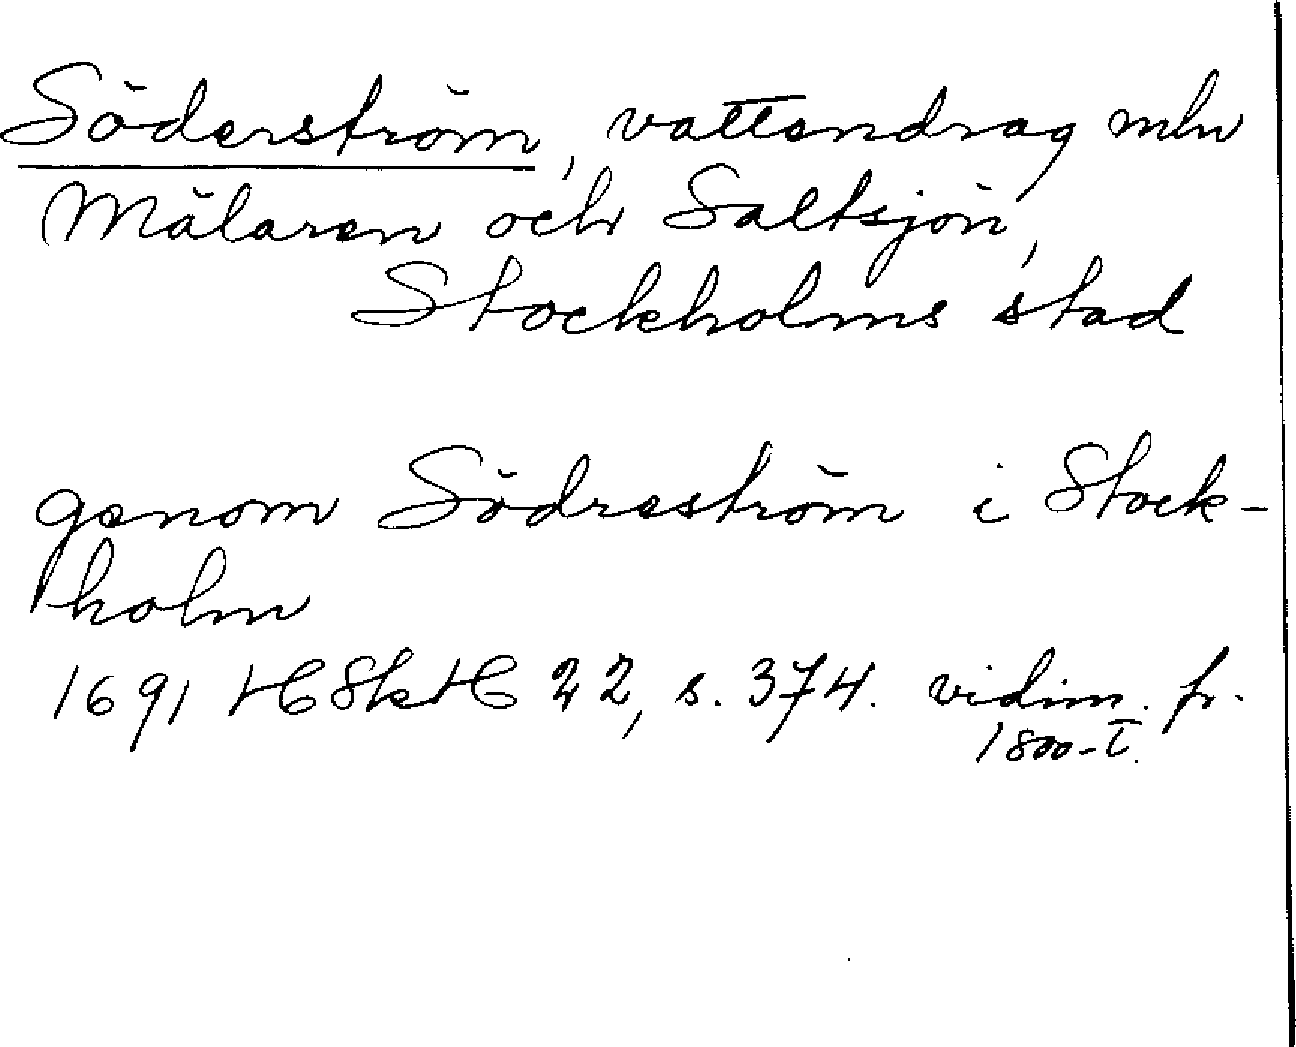 Söderström, vattendrag mln
Mälaren och Saltsjön,
Stockholms stad
genom Södreström i Stock-
holm
1691 HSkH 22, s. 374. vidim. fr.
1800-t.